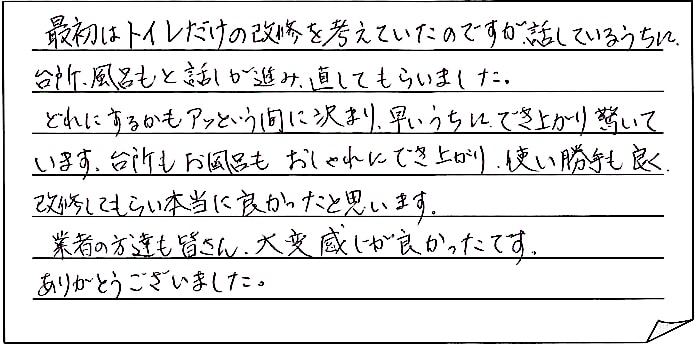 最初はトイレだけの改修を考えていたのですが話しているうちに、
台所、風呂もと話しが進み、直してもらいました。
どれにするかもアッという間に決まり、早いうちに、でき上がり驚いて
います。台所もお風呂もおしゃれにでき上がり、使い勝手も良く、
改修してもらい本当に良かったと思います。
業者の方達も皆さん、大変感じが良かったです。
ありがとうございました。